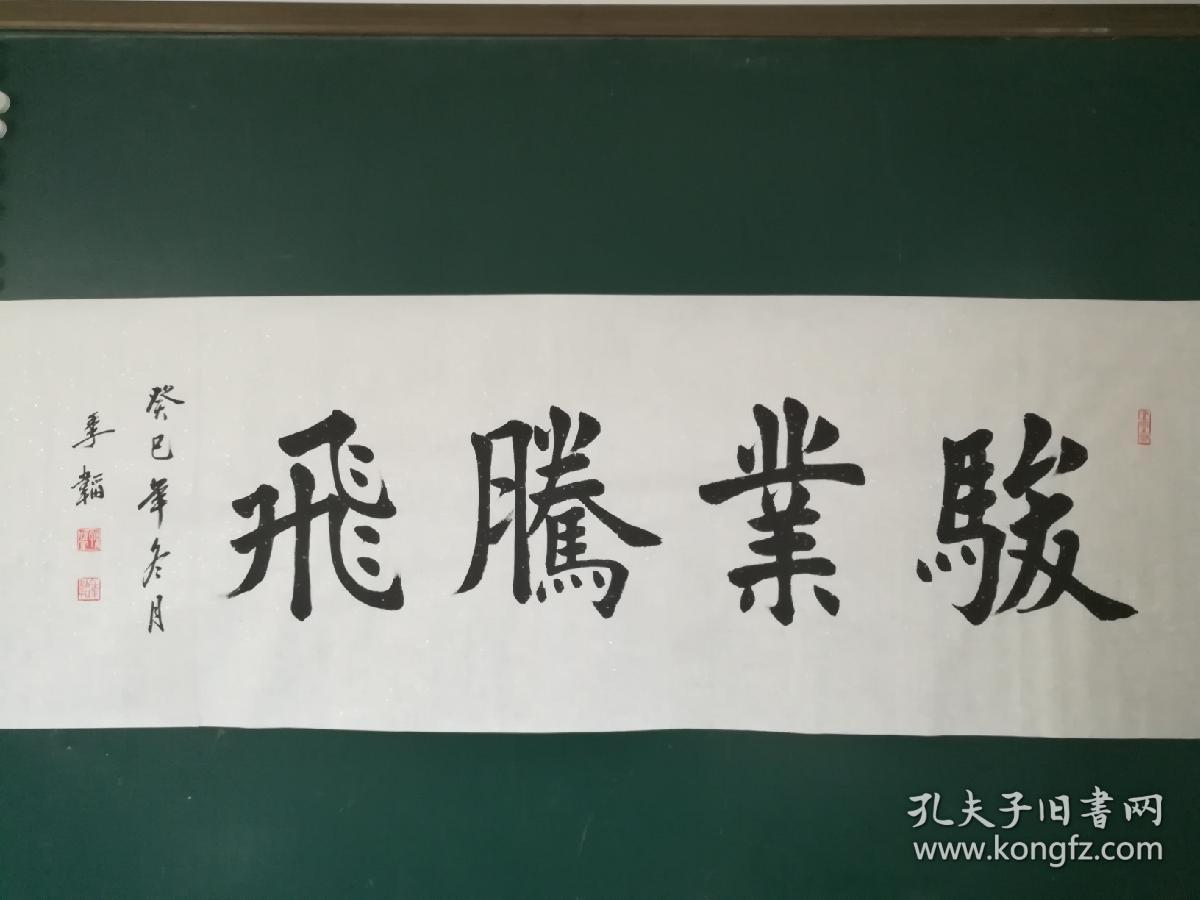 駿業騰飛
癸巳年冬月
季韜
孔夫子旧書网
www.kongfz.com